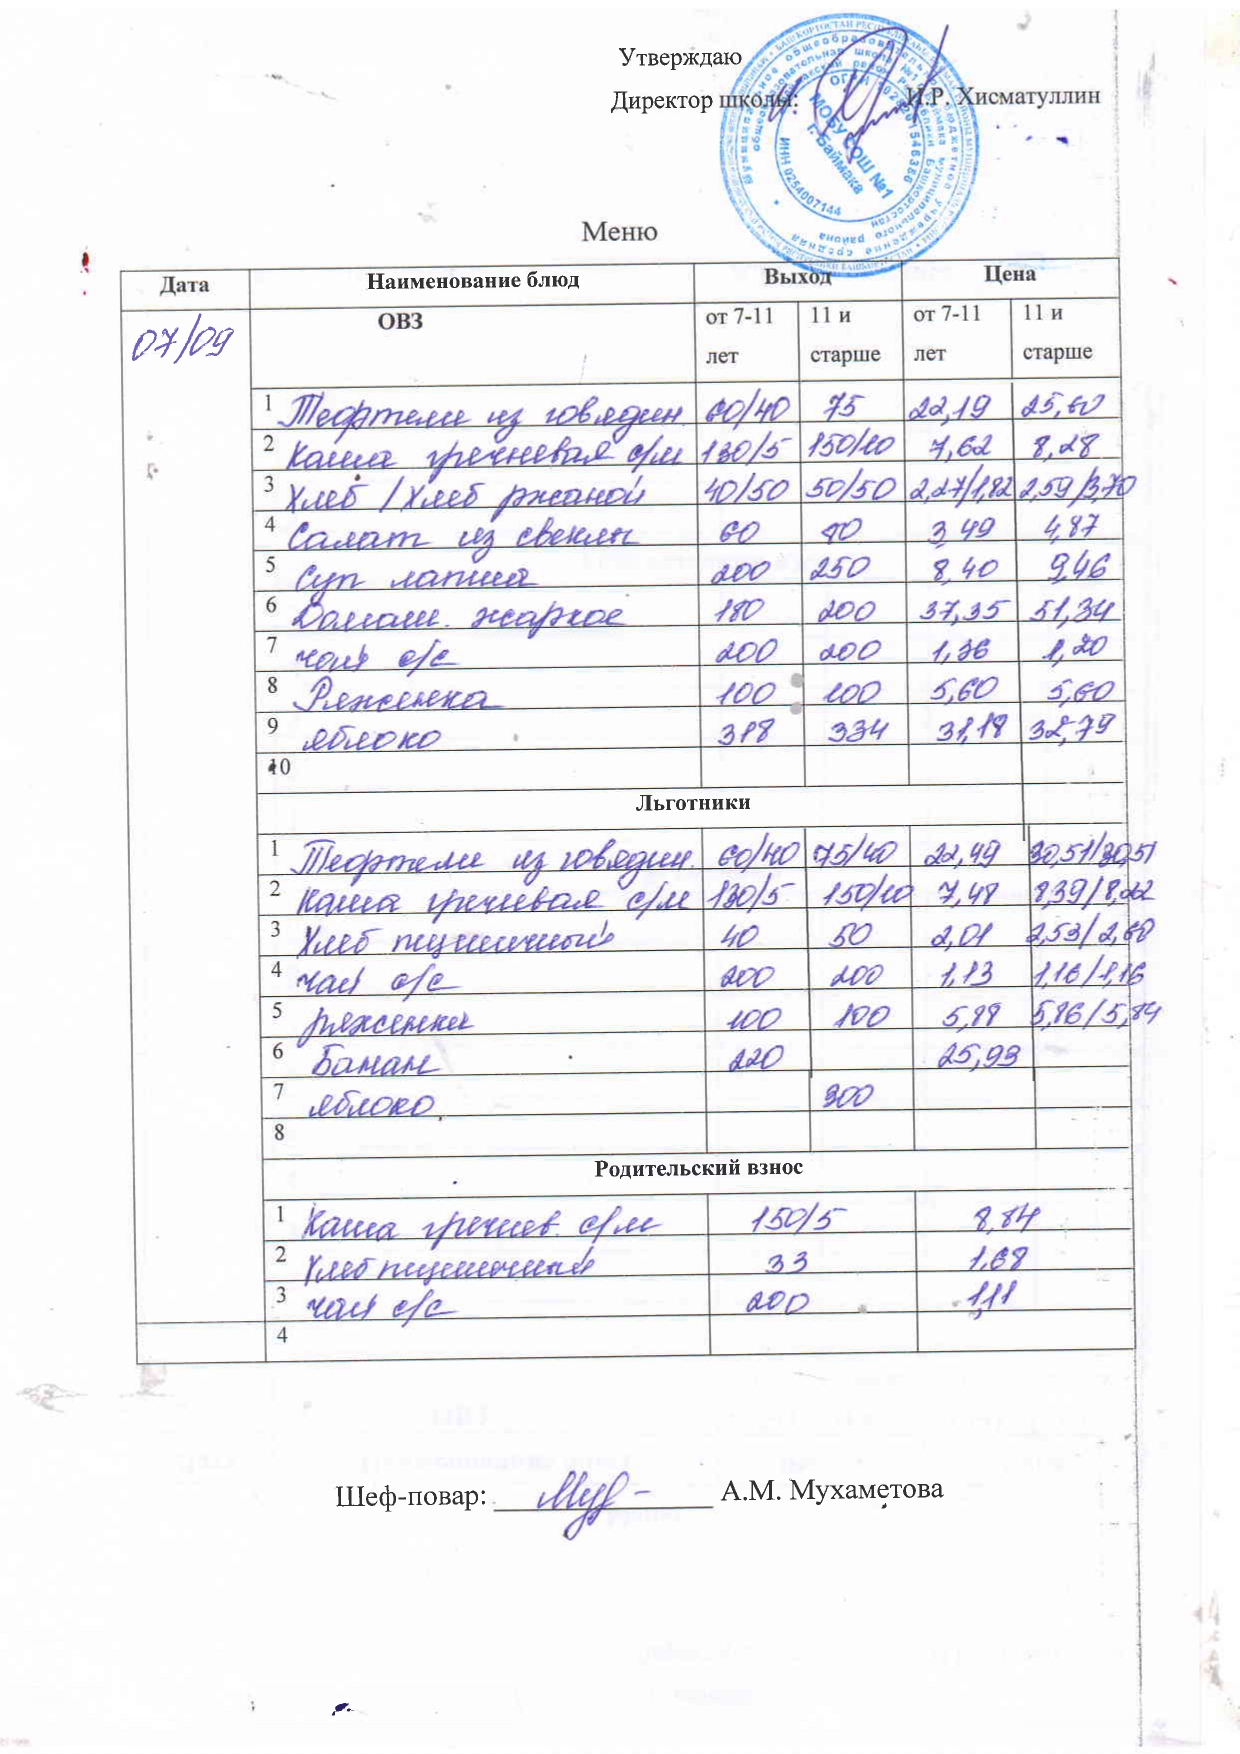 Утверждаю
Директор школы: И.Р. Хисматуллин
МОБУ СОШ №1
г. Баймака
ИНН 0254007144
Меню
Дата Наименование блюд Выход Цена
07/09 ОВЗ от 7-11 лет 11 и старше от 7-11 лет 11 и старше
1 Тефтели из говядин. 60/40 75 22,19 25,60
2 Каша гречневая с/м 130/5 150/10 7,62 8,28
3 Хлеб / Хлеб ржаной 40/50 50/50 2,27/1,82 2,59/3,70
4 Салат из свеклы 60 80 3,49 4,87
5 Суп лапша 200 250 8,40 9,46
6 Домаш. жаркое 180 200 37,35 51,34
7 чай с/с 200 200 1,36 1,20
8 Ряженка 100 100 5,60 5,60
9 яблоко 318 334 31,18 32,79
10
Льготники
1 Тефтели из говядин. 60/40 75/40 22,49 30,51/30,51
2 Каша гречневая с/м 130/5 150/10 7,48 8,39/8,22
3 Хлеб пшеничный 40 50 2,01 2,53/2,60
4 чай с/с 200 200 1,13 1,16/1,16
5 ряженка 100 100 5,88 5,86/5,84
6 Банан 220 25,93
7 яблоко 300
8
Родительский взнос
1 Каша гречнев. с/м 150/5 8,84
2 Хлеб пшеничный 33 1,68
3 чай с/с 200 1,11
4
Шеф-повар: А.М. Мухаметова